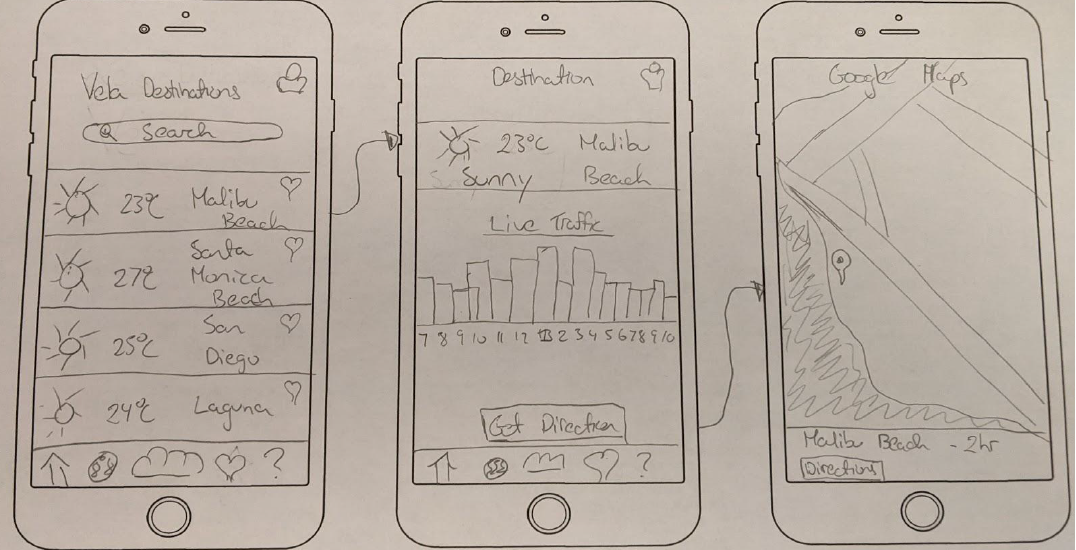 Vela Destinations
Search
23°C Malibu
Beach
27°C Santa
Monica
Beach
25°C San
Diego
24°C Laguna
?
Destination
23°C Malibu
Sunny Beach
Live Traffic
7 8 9 10 11 12 13 2 3 4 5 6 7 8 9 10
Get Direction
?
Google Maps
Malibu Beach - 2hr
Directions